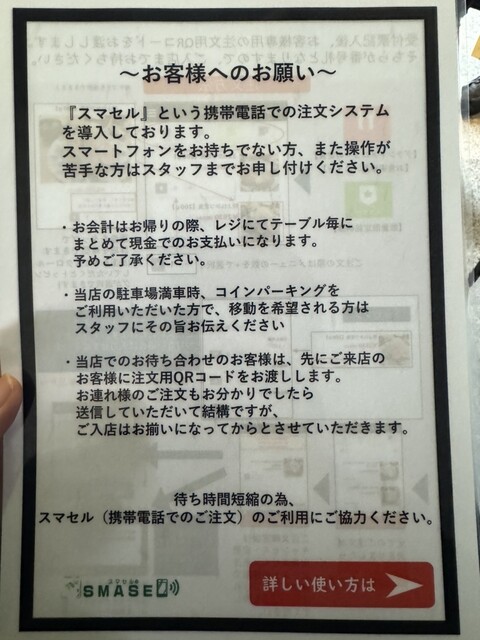 ～お客様へのお願い～
『スマセル』という携帯電話での注文システム
を導入しております。
スマートフォンをお持ちでない方、また操作が
苦手な方はスタッフまでお申し付けください。
・お会計はお帰りの際、レジにてテーブル毎に
まとめて現金でのお支払いになります。
予めご了承ください。
・当店の駐車場満車時、コインパーキングを
ご利用いただいた方で、移動を希望される方は
スタッフにその旨お伝えください
・当店でのお待ち合わせのお客様は、先にご来店の
お客様に注文用QRコードをお渡しします。
お連れ様のご注文もお分かりでしたら
送信していただいて結構ですが、
ご入店はお揃いになってからとさせていただきます。
待ち時間短縮の為、
スマセル（携帯電話でのご注文）のご利用にご協力ください。
スマセル
SMASE
詳しい使い方は